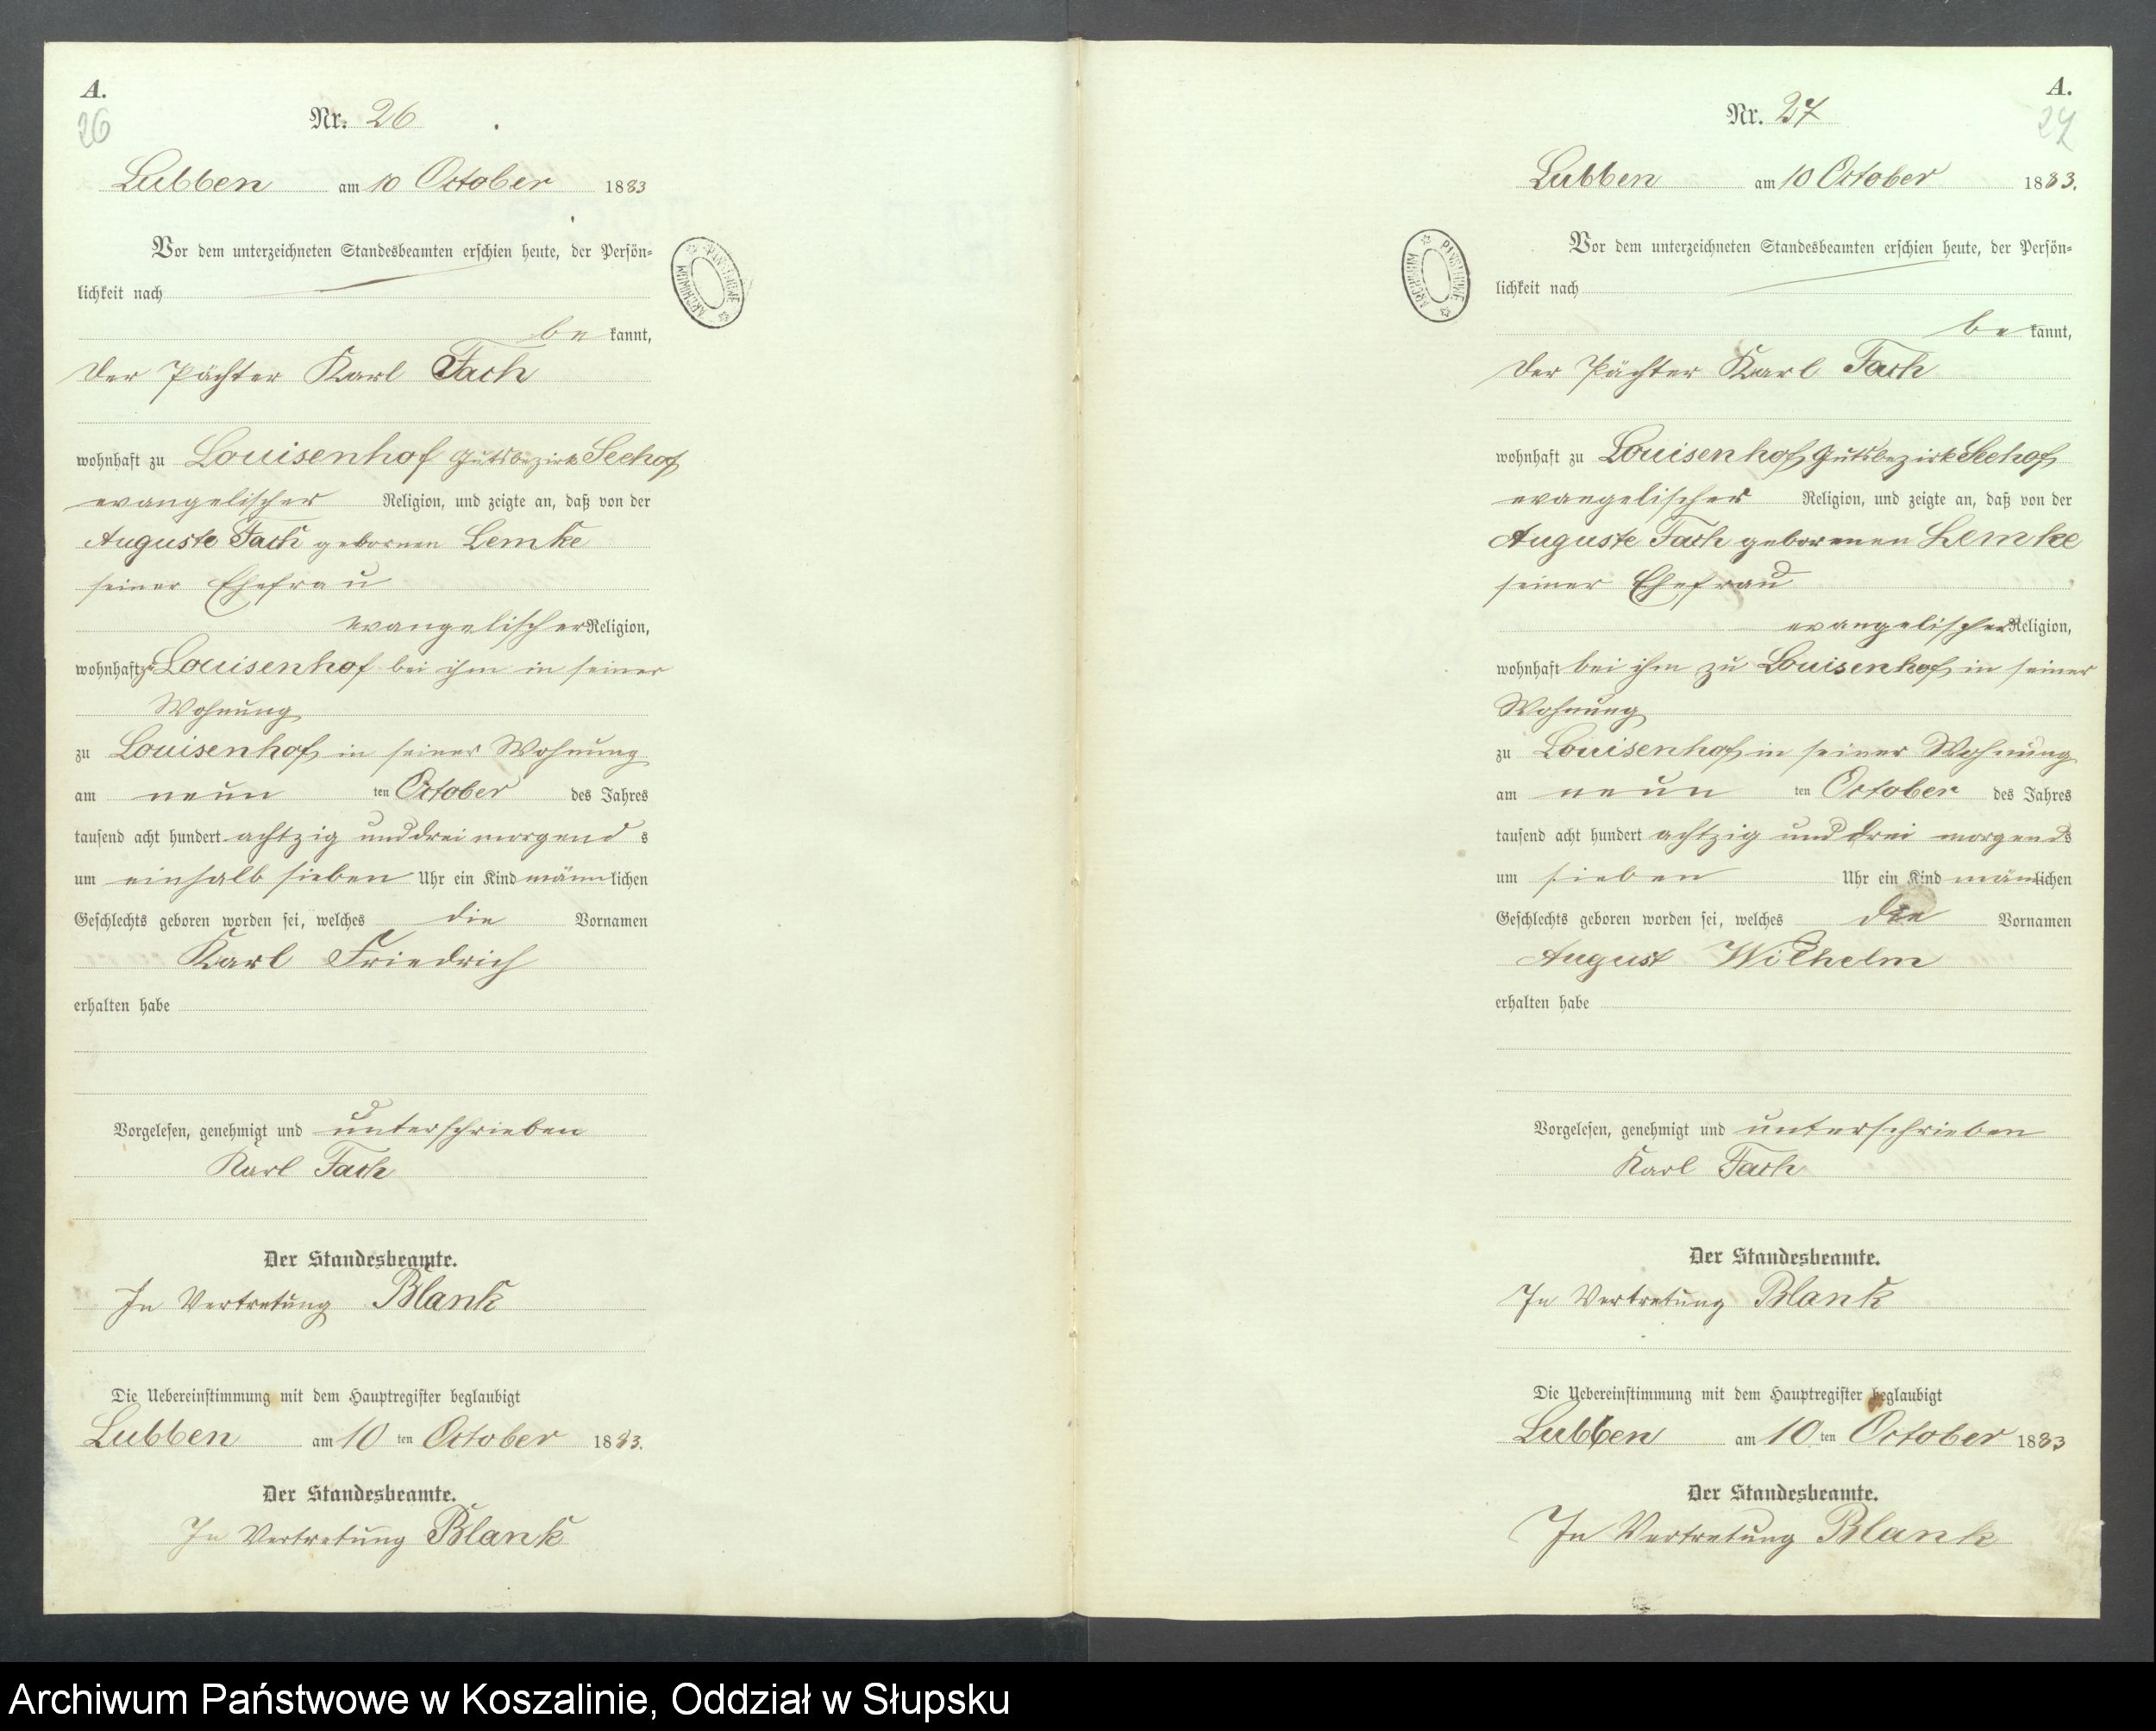 A.
26
Nr. 26
Lubben am 10 October 1883
Vor dem unterzeichneten Standesbeamten erschien heute, der Persön=
lichkeit nach
be kannt,
der Pächter Karl Fach
wohnhaft zu Louisenhof Gutsbezirk Seehof
evangelischer Religion, und zeigte an, daß von der
Auguste Fach gebornen Lemke
seiner Ehefrau
evangelischer Religion,
wohnhaft zu Louisenhof bei ihm in seiner
Wohnung
zu Louisenhof in seiner Wohnung
am neun ten October des Jahres
tausend acht hundert achtzig und drei morgend s
um einhalb sieben Uhr ein Kind männlichen
Geschlechts geboren worden sei, welches die Vornamen
Karl Friedrich
erhalten habe
Vorgelesen, genehmigt und unterschrieben
Karl Fach
Der Standesbeamte.
In Vertretung Blank
Die Uebereinstimmung mit dem Hauptregister beglaubigt
Lubben am 10 ten October 1883.
Der Standesbeamte.
In Vertretung Blank
ARCHIWUM PAŃSTWOWE
A.
27
Nr. 27
Lubben am 10 October 1883.
Vor dem unterzeichneten Standesbeamten erschien heute, der Persön=
lichkeit nach
be kannt,
der Pächter Karl Fach
wohnhaft zu Louisenhof Gutsbezirk Seehof
evangelischer Religion, und zeigte an, daß von der
Auguste Fach gebornenen Lemke
seiner Ehefrau
evangelischer Religion,
wohnhaft bei ihm zu Louisenhof in seiner
Wohnung
zu Louisenhof in seiner Wohnung
am neun ten October des Jahres
tausend acht hundert achtzig und drei morgends
um sieben Uhr ein Kind männlichen
Geschlechts geboren worden sei, welches die Vornamen
August Wilhelm
erhalten habe
Vorgelesen, genehmigt und unterschrieben
Karl Fach
Der Standesbeamte.
In Vertretung Blank
Die Uebereinstimmung mit dem Hauptregister beglaubigt
Lubben am 10 ten October 1883
Der Standesbeamte.
In Vertretung Blank
ARCHIWUM PAŃSTWOWE
Archiwum Państwowe w Koszalinie, Oddział w Słupsku